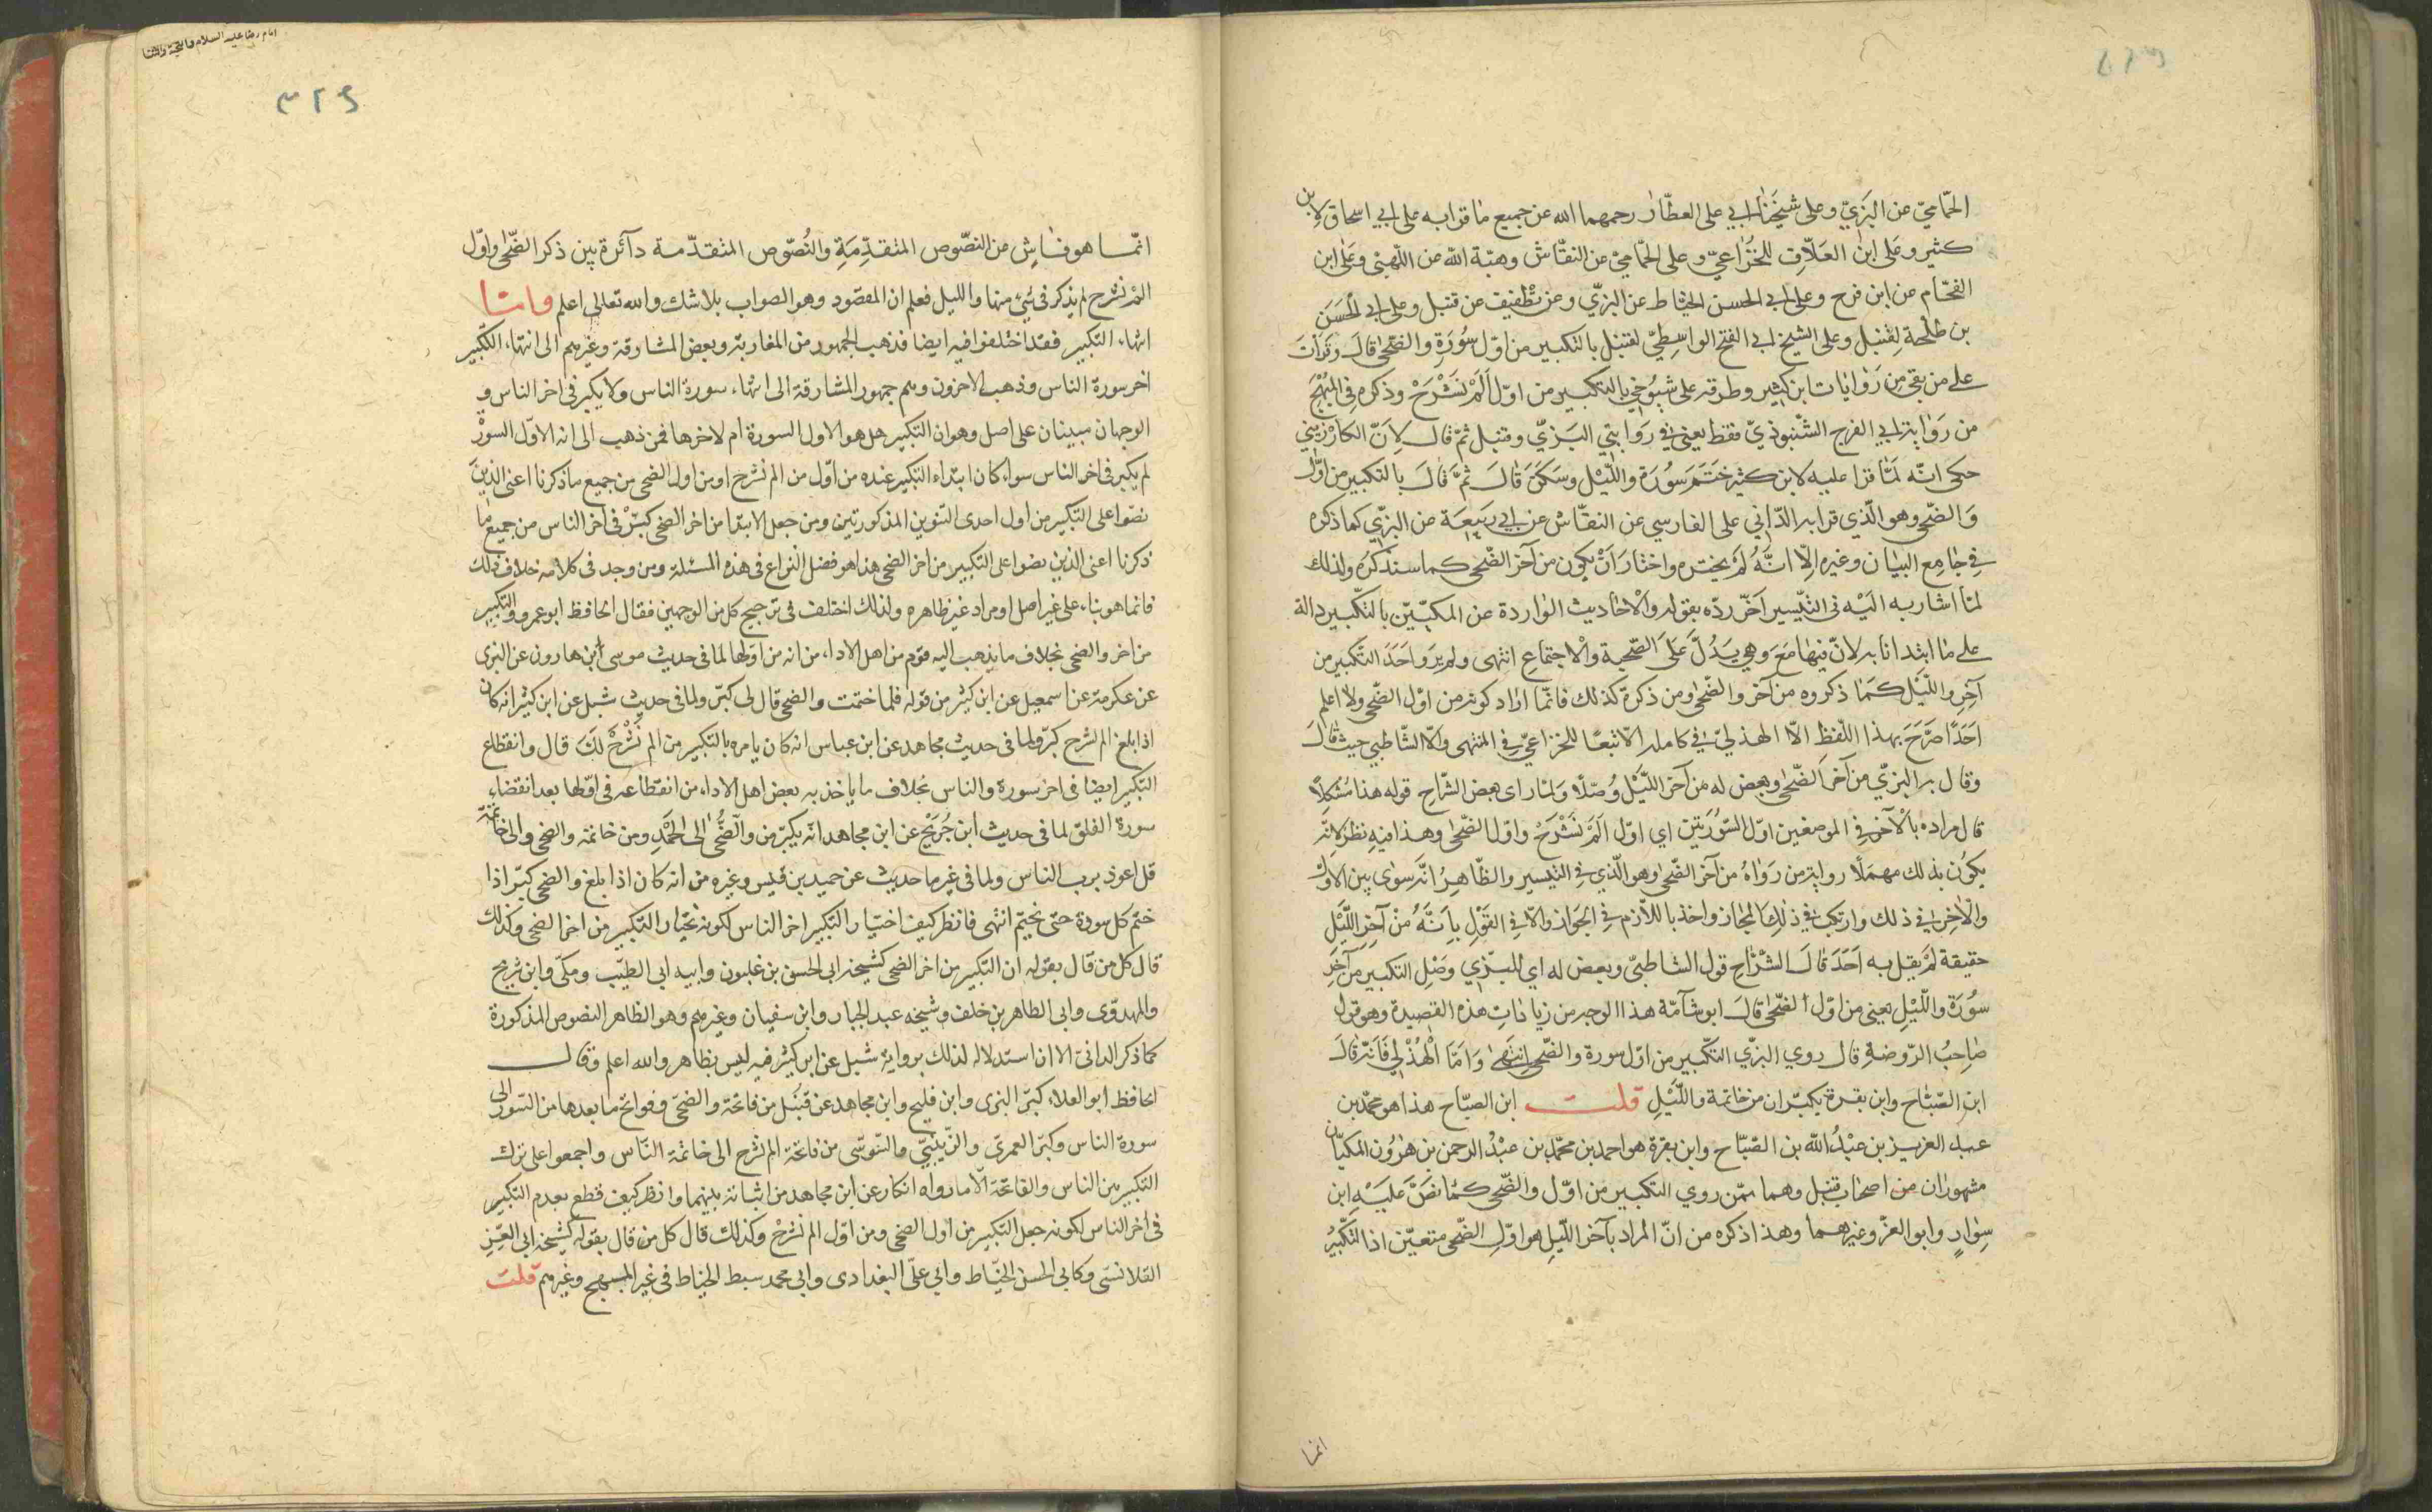 الحمّامي عن البزيّ وعلى شيخنا ابي على العطّار رحمهما الله عن جميع ما قرا به على ابي اسحاق لابن
كثير وعلى ابن العلّاف للخزاعيّ وعلى الحمّامي عن النقّاش وهبة الله عن اللهبى وعلى ابن
الفحّام عن ابن فرح وعلى ابي الحسن الخيّاط عن البزيّ وعن نظيف عن قنبل وعلى ابي الحسن
بن طلحة لقنبل وعلى الشيخ ابي الفتح الواسطيّ لقنبل بالتكبير من اوّل سورة والضّحى قال وقرات
على من بقي من روايات ابن كثير وطرقه على شيوخي بالتكبير من اوّل الم نشرح وذكره في المبهج
من رواية ابي الفرج الشّنبوذيّ فقط يعني في روايتي البزيّ وقنبل ثمّ قال لانّ الكارزيني
حكى انّه لمّا قرا عليه لابن كثير ختم سورة واللّيل وسكت قال ثمّ قال بالتكبير من اوّل
والضّحى وهو الّذي قرا به الدّاني على الفارسي عن النقّاش عن ابي ربيعة عن البزّي كما ذكره
في جامع البيان وغيره الّا انّه لم يختره واختار ان يكون من آخر الضّحى كما سنذكره ولذلك
لمّا اشار به اليه فى التيسير آخر ردّه بقوله والاحاديث الواردة عن المكيّين بالتكبير دالة
على ما ابتدانا به لانّ فيها مع وهي يدلّ على الصّحبة والاجتماع انتهى ولم يرو احد التكبير من
آخر واللّيل كما ذكروه من آخر والضّحى ومن ذكره كذلك فانّما اراد كونه من اوّل الضّحى ولا اعلم
احدًا صرّح بهذا اللّفظ الّا الهذليّ في كامله الّا تبعًا للخزاعيّ في المنتهى والّا الشّاطبي حيث قال
وقال به البزّي من آخر الضّحى وبعض له من آخر اللّيل وصّلا ولمّا راى بعض الشّراح قوله هذا مشكلاً
قال مراده بالآخر في الموضعين اوّل السّورتين اي اوّل الم نشرح واوّل الضّحى وهذا فيه نظر لانّه
يكون بذلك مهملًا رواية من رواه من آخر الضّحى وهو الّذي في التيسير والظّاهر انّه سوى بين الاوّل
والآخر في ذلك وارتكب في ذلك المجاز واخذ باللّازم في الجواز والّا في القول بانّه من آخر اللّيل
حقيقة لم يقل به احد قال الشرّاح قول الشاطبيّ وبعض له اي للبزّي وصل التكبير من آخر
سورة واللّيل يعني من اوّل الضّحى قال ابو شامّة هذا الوجه من زيادات هذه القصيدة وهو قول
صاحب الرّوضة قال روي البزّي التكبير من اوّل سورة والضّحى انتهى وامّا الهذلي فانّه قال
ابن الصّبّاح وابن بقرة يكبّران من خاتمة واللّيل قلت ابن الصبّاح هذا هو محمّد بن
عبد العزيز بن عبد الله بن الصّبّاح وابن بقرة هو احمد بن محمّد بن عبد الرحمن بن هرون المكيّان
مشهوران من اصحاب قنبل وهما ممّن روي التكبير من اوّل والضّحى كما نصّ عليه ابن
سوار وابو العزّ وغيرهما وهذا ذكره من انّ المراد بآخر اللّيل هو اوّل الضّحى متعيّن اذ التكبير
انما
امام رضا عليه السلام والتحية والثنا
٣٢٩
انّما هو ناش من النصّوص المتقدّمة والنّصوص المتقدّمة دآئرة بين ذكر الضّحى واوّل
الم نشرح لم يذكر فى شيء منها والليل فعلم ان المقصود وهو الصواب بلا شك والله تعالى اعلم وامّا
انتهاء التكبير فقد اختلفوا فيه ايضا فذهب الجمهور من المغاربة وبعض المشارقة وغيرهم الى انتهاء التكبير
اخر سورة الناس وذهب الاخرون وهم جمهور المشارقة الى انتهاء سورة الناس ولا يكبر فى اخر الناس و
الوجهان مبينان على اصل وهو ان التكبير هل هو الاول السورة ام لاخرها فمن ذهب الى انه الاوّل السورة
لم يكبر فى اخر الناس سواء كان ابتداء التكبير عنده من اوّل من الم نشرح او من اول الضحى من جميع ما ذكرنا اعنى الذين
نصّوا على التكبير من اول احدى السّورتين المذكورتين ومن جعل الابتدا من اخر الضحى كبّر فى اخر الناس من جميع ما
ذكرنا اعنى الذين نصوا على التكبير من اخر الضحى هذا هو فصل النزاع فى هذه المسئلة ومن وجد فى كلامه خلاف ذلك
فانما هو بناء على غير اصل او مراد غير ظاهره ولذلك اختلف فى ترجيح كل من الوجهين فقال الحافظ ابو عمرو والتكبير
من اخر والضحى بخلاف ما يذهب اليه قوم من اهل الاداء من انه من اوّلها لما فى حديث موسى ابن هارون عن البزى
عن عكرمة عن اسمعيل عن ابن كثير من قوله فلما ختمت والضحى قال لى كبّر ولما فى حديث شبل عن ابن كثير انه كان
اذا بلغ الم نشرح كبّر ولما فى حديث مجاهد عن ابن عباس انه كان يامره بالتكبير من الم نشرح لك قال وانقطاع
التكبير ايضا فى اخر سورة والناس بخلاف ما ياخذ به بعض اهل الاداء من انقطاعه فى اوّلها بعد انقضاء
سورة الفلق لما فى حديث ابن جريج عن ابن مجاهد انه يكبّر من والضّحى الى الحمد ومن خاتمة والضحى والى خاتمة
قل اعوذ برب الناس ولما فى غير ما حديث عن حميد بن قيس وغيره من انه كان اذا بلغ والضحى كبّر اذا
ختم كل سورة حتى يختم انتهى فانظر كيف اختيار التكبير اخر الناس لكونه يختار التكبير من اخر الضحى وكذلك
قال كل من قال بقوله ان التكبير من اخر الضحى كشيخه ابى الحسن بن غلبون وابيه ابى الطيّب ومكّى وابن شريح
والمهدوّى وابى الطاهر بن خلف وشيخه عبد الجبار وابن سفيان وغيرهم وهو الظاهر النصوص المذكورة
كما ذكر الدانى الا ان استدلاله لذلك برواية شبل عن ابن كثير فيه ليس بظاهر والله اعلم وقال
الحافظ ابو العلاء كبّر البزى وابن فليح وابن مجاهد عن قنبل من فاتحة والضحىّ وفواتح ما بعدها من السّور الى
سورة الناس وكبّر العمرىّ والزّينبيّ والسّوسى من فاتحة الم نشرح الى خاتمة النّاس واجمعوا على ترك
التكبير بين الناس والفاتحة الّا ما رواه انكار عن ابن مجاهد من اثباته بينهما وانظر كيف قطع بعدم التكبير
فى اخر الناس لكونه جعل التكبير من اول الضحى ومن اوّل الم نشرح وكذلك قال كل من قال بقوله كشيخه ابى العزيز
القلانسى وكابى الحسن الخيّاط وابي علىّ البغدادى وابى محمد سبط الخياط فى غير المبهج وغيرهم قلت